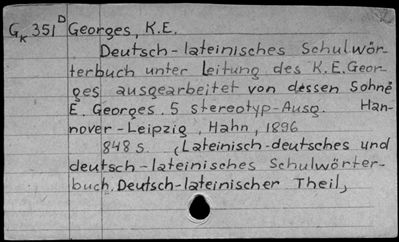 GK 351 D Georges, K.E.
Deutsch-lateinisches Schulwör-
terbuch unter Leitung des K.E.Geor-
ges ausgearbeitet von dessen Sohne
E. Georges. 5 stereotyp-Ausg. Han-
nover-Leipzig, Hahn, 1896
848 S. (Lateinisch-deutsches und
deutsch-lateinisches Schulwörter-
buch, Deutsch-lateinischer Theil)